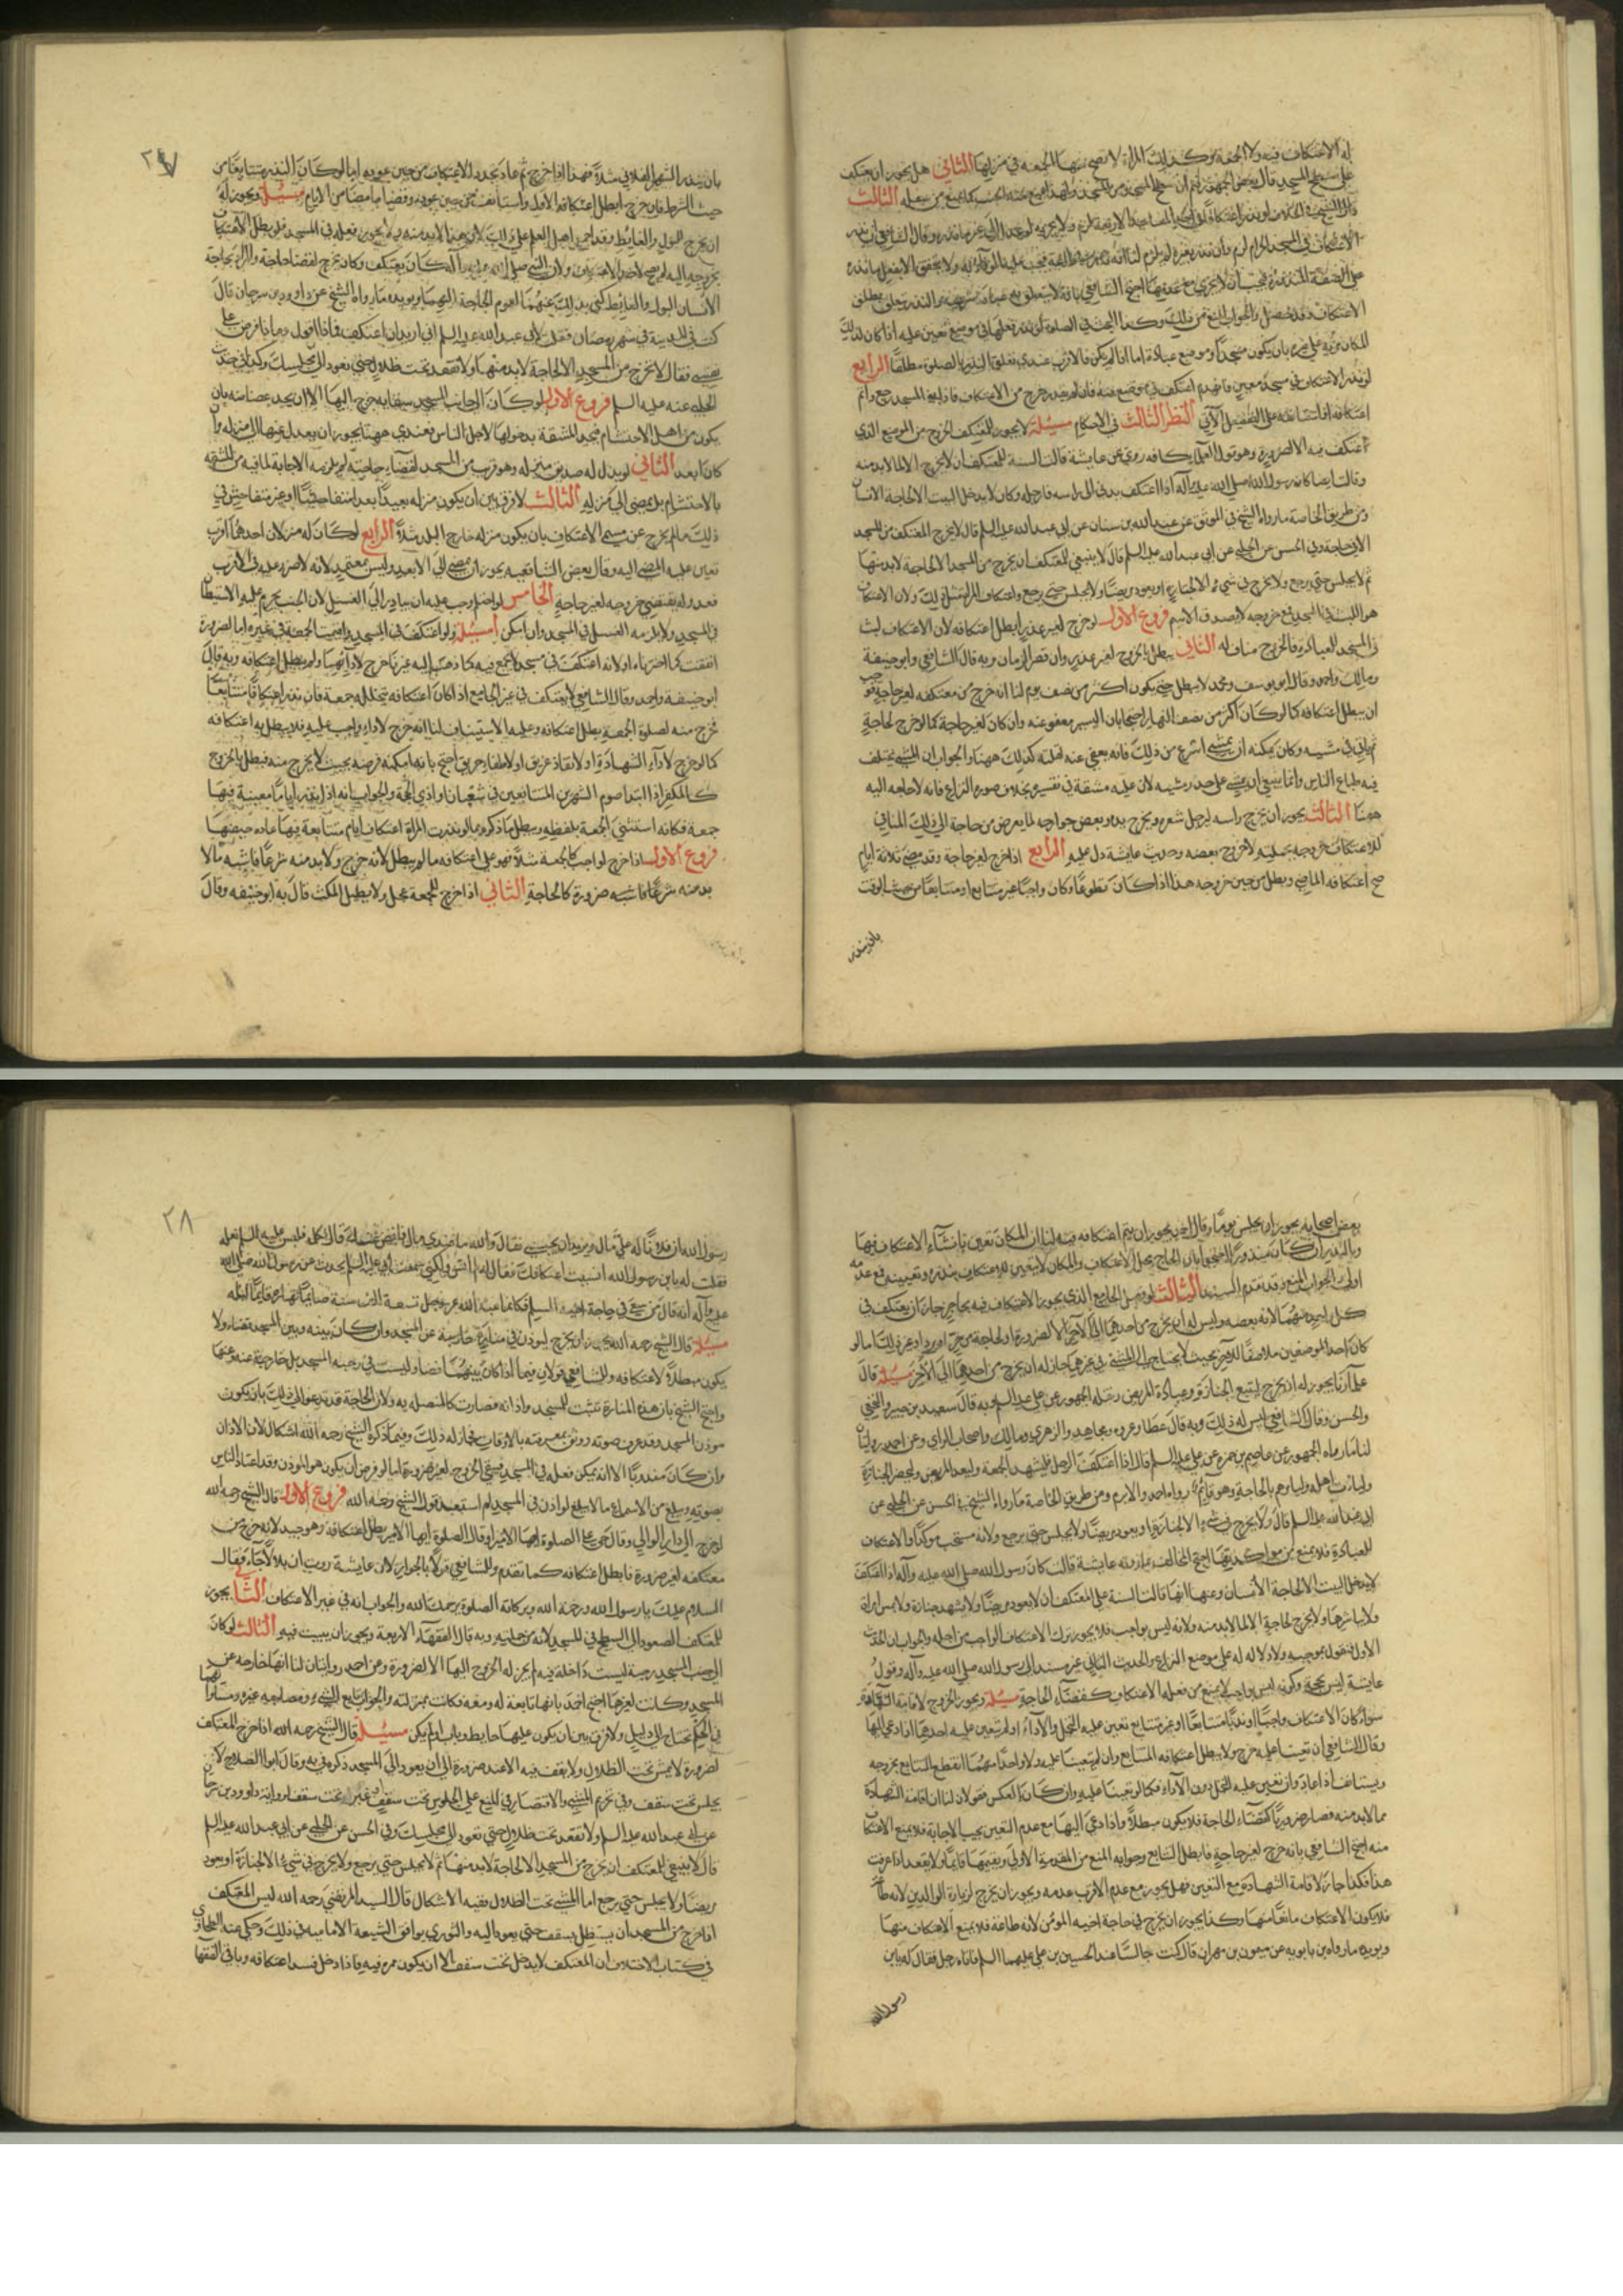 له الاعتكاف فيه ولا الجمعة وكذلك المراة لا تصح منها الجمعة في منزلها الثاني هل يجوز ان يعتكف
على سطح المسجد قال بعض الجمهور نعم لان سطح المسجد من المسجد ولهذا يمنع منه الجنب كما يمنع من سفله الثالث
قال الشيخ في الخلاف لو نذر اعتكافا في احد المساجد الاربعة لزم ولا يجزيه لو عدل الى غير ما نذر وقال الشافعي ان نذر
الاعتكاف في المسجد الحرام لزم وان نذر بغيره لم يلزم لنا انه نذر في طاعة فيجب عليه الوفاء به ولا يتحقق الا بفعل ما نذره
على الصفة المنذورة فيجب ان لا يجزي مع عدمها احتج الشافعي بانه لا يتعلق به عبادة شرعية والنذر يتعلق بمطلق
الاعتكاف وقد حصل والجواب المنع من ذلك وكذا البحث في الصلوة لو نذر فعلها في موضع تعين عليه اذا كان لذلك
المكان مزية على غيره بان يكون مسجدا او موضع عبادة اما اذا لم يكن فالاقرب عندي تعلق النذر بالصلوة مطلقا الرابع
لو نذر الاعتكاف في مسجد معين فانهدم اعتكف في موضع منه فان لم يقدر خرج من الاعتكاف فاذا بني المسجد رجع واتم
اعتكافه او استانفه على التفصيل الاتي النظر الثالث في الاحكام مسئلة لا يجوز للمعتكف الخروج من الموضع الذي
اعتكف فيه الا لضرورة وهو قول العلماء كافة روي عن عايشة قالت السنة للمعتكف ان لا يخرج الا لما لا بد منه
وقالت ايضا كان رسول الله صلى الله عليه وآله اذا اعتكف يدني الى راسه فارجله وكان لا يدخل البيت الا لحاجة الانسان
ومن طريق الخاصة ما رواه الشيخ في الموثق عن عبد الله بن سنان عن ابي عبد الله عليه السلم قال لا يخرج المعتكف من المسجد
الا في حاجة وفي الحسن عن الحلبي عن ابي عبد الله عليه السلم قال لا ينبغي للمعتكف ان يخرج من المسجد الا لحاجة لا بد منها
ثم لا يجلس حتى يرجع ولا يخرج في شيء الا لجنازة او يعود مريضا ولا يجلس حتى يرجع واعتكاف المراة مثل ذلك ولان الاعتكاف
هو اللبث في المسجد فمع خروجه لا يصدق الاسم فروع الاول لو خرج لغير عذر ابطل اعتكافه لان الاعتكاف لبث
في المسجد للعبادة فالخروج مناف له الثاني يبطل بالخروج لغير عذر وان قصر الزمان وبه قال الشافعي وابو حنيفة
ومالك واحمد وقال ابو يوسف ومحمد لا يبطل حتى يكون اكثر من نصف يوم لنا انه خرج من معتكفه لغير حاجة فوجب
ان يبطل اعتكافه كما لو كان اكثر من نصف النهار احتجا بان اليسير معفو عنه وان كان لغير حاجة كما لو خرج لحاجة
ثم تانى في مشيه وكان يمكنه ان يمشي اسرع من ذلك فانه يعفى عنه لقلته كذلك ههنا والجواب ان المشي يختلف
فيه طباع الناس وانما ينبغي ان يمشي على حد مشيه لان عليه مشقة في تغييره بخلاف صورة النزاع فانه لا حاجة اليه
ههنا الثالث يجوز ان يخرج راسه ليرجل شعره ويخرج يده وبعض جوارحه لما يعرض من حاجة الى ذلك المنافي
للاعتكاف خروجه بجملته لا خروج بعضه وحديث عايشة دل عليه الرابع اذا خرج لغير حاجة وقد مضى ثلاثة ايام
صح اعتكافه الماضي وبطل من حين خروجه هذا اذا كان تطوعا او كان واجبا غير متتابع او متتابعا من حيث الوقت
بان ينذر
٢٧
بان ينذر الشهر الفلاني مثلا فهذا اذا خرج ثم عاد يجدد الاعتكاف من حين عوده اما لو كان النذر متتابعا من
حيث الشرط فان خرج ابطل اعتكافه الاول واستانف من حين عوده وقضا ما مضا من الايام مسئلة ويجوز له
ان يخرج للبول والغايط وقد اجمع اهل العلم على ذلك لان هذا لا بد منه ولا يجوز فعله في المسجد فلو بطل الاعتكاف
بخروجه اليه لم يصح لاحد الاعتكاف ولان النبي صلى الله عليه وآله كان يعتكف وكان يخرج لقضا حاجته والمراد بحاجة
الانسان البول والغايط كنى بذلك عنهما لعموم الحاجة اليهما ويؤيده ما رواه الشيخ عن داوود بن سرحان قال
كنت في المدينة في شهر رمضان فقلت لابي عبد الله عليه السلم اني اريد ان اعتكف فماذا اقول وماذا افرض على
نفسي فقال لا تخرج من المسجد الا لحاجة لا بد منها ولا تقعد تحت ظلال حتى تعود الى مجلسك وكذا في حديث
الحلبي عنه عليه السلم فروع الاول لو كان الى جانب المسجد سقاية خرج اليها الا ان يجد غضاضة بان
يكون من اهل الاحتشام فيجد المشقة بدخولها لاجل الناس فعندي ههنا يجوز ان يعدل عنها الى منزله وان
كان ابعد الثاني لو بذل له صديق منزله وهو قريب من المسجد لقضاء حاجته لم يلزمه الاجابة لما فيه من المشقة
بالاحتشام بل يمضي الى منزله الثالث لا فرق بين ان يكون منزله بعيدا بعدا متفاحشا او غير متفاحش في
ذلك ما لم يخرج عن مسمى الاعتكاف بان يكون منزله خارج البلد مثلا الرابع لو كان له منزلان احدهما اقرب
تعين عليه المضي اليه وقال بعض الشافعية يجوز ان يمضي الى الابعد وليس بمعتمد لانه لا ضرورة عليه في الاقرب
فعدوله يقتضي خروجه لغير حاجة الخامس لو احتلم وجب عليه ان يبادر الى الغسل لان الجنب يحرم عليه الاستيطان
في المسجد ولا يلزمه الغسل في المسجد وان امكن مسئلة ولو اعتكف في المسجد واقيمت الجمعة في غيره اما لضرورة
اتفقت كما اخترناه او لانه اعتكف في مسجد لا يجمع فيه كما ذهب اليه غيرنا خرج لادائها ولم يبطل اعتكافه وبه قال
ابو حنيفة واحمد وقال الشافعي لا يعتكف في غير الجامع اذا كان اعتكافه يتخلله جمعة فان نذر اعتكافا متتابعا
فخرج منه لصلوة الجمعة بطل اعتكافه وعليه الاستيناف لنا انه خرج لاداء واجب عليه فلا يبطل به اعتكافه
كما لو خرج لاداء الشهادة او لانقاذ غريق او لاطفاء حريق احتج بانه امكنه فرضه بحيث لا يخرج منه فبطل بالخروج
كالمكفر اذا ابتدا صوم الشهرين المتتابعين في شعبان او ذي الحجة والجواب انه اذا نذر اياما معينة فيها
جمعة فكانه استثنى الجمعة بلفظه ويبطل ما ذكره بما لو نذرت المراة اعتكاف ايام متتابعة فيها عادة حيضها
فروع الاول اذا خرج لواجب كالجمعة مثلا فهو على اعتكافه ما لم يبطل لانه خرج ولا بد منه شرعا فاشبه ما لا
بد منه شرعا فاشبه ضرورة كالحاجة الثاني اذا خرج للجمعة عجل ولا يطيل المكث قال به ابو حنيفة وقال
بعض اصحابه يجوز ان يجلس يوما وقال احمد يجوز ان يتم اعتكافه فيه لنا ان المكان تعين بانشاء الاعتكاف فيها
وبالنذر ان كان منذورا احتجوا بان الحاج يحل الاعتكاف والمكان لا يتعين للاعتكاف بنذره وتعيينه فمع عدمه
اولى والجواب المنع وقد تقدم الثالث لو فصل الجامع الذي يجوز الاعتكاف فيه بحاجز جاز ان يعتكف في
كل احد منهما لانه بعضه وليس له ان يخرج من احدهما الى الآخر الا لضرورة او لحاجة من حر او برد او غير ذلك اما لو
كان احد الموضعين ملاصقا للاخر بحيث لا يحتاج الى المشي في غيرهما جاز له ان يخرج من احدهما الى الآخر مسئلة قال
علماؤنا يجوز له ان يخرج لتشيع الجنازة وعيادة المريض ونقله الجمهور عن علي عليه السلم وبه قال سعيد بن جبير والنخعي
والحسن وقال الشافعي ليس له ذلك وبه قال عطا وعروة ومجاهد والزهري ومالك واصحاب الراي وعن احمد روايتان
لنا ما رواه الجمهور عن عاصم بن ضمرة عن علي عليه السلم قال اذا اعتكف الرجل فليشهد الجمعة وليعد المريض وليحضر الجنازة
وليات اهله وليامرهم بالحاجة وهو قائم رواه احمد والاثرم ومن طريق الخاصة ما رواه الشيخ في الحسن عن الحلبي عن
ابي عبد الله عليه السلم قال ولا يخرج في شيء الا لجنازة او يعود مريضا ولا يجلس حتى يرجع ولانه مستحب مؤكد والاعتكاف
للعبادة فلا يمنع من مؤكداتها احتج المخالف بما روته عايشة قالت كان رسول الله صلى الله عليه وآله اذا اعتكف
لا يدخل البيت الا لحاجة الانسان وعنها انها قالت السنة على المعتكف ان لا يعود مريضا ولا يشهد جنازة ولا يمس امراة
ولا يباشرها ولا يخرج لحاجة الا لما لا بد منه ولانه ليس بواجب فلا يجوز ترك الاعتكاف الواجب من اجله والجواب ان الحديث
الاول نقول بموجبه ولا دلالة له على موضع النزاع والحديث الثاني غير مسند الى رسول الله صلى الله عليه وآله وقول
عايشة ليس بحجة وكونه ليس بواجب لا يمنع من فعله الاعتكاف كقضاء الحاجة مسئلة ويجوز الخروج لاقامة الشهادة
سواء كان الاعتكاف واجبا او ندبا متتابعا او غير متتابع تعين عليه التحمل والاداء او لم يتعين عليه احدهما اذا دعي اليها
وقال الشافعي ان تعينا عليه خرج ولا يبطل اعتكافه المتتابع وان لم يتعينا عليه ولا واحدا منهما انقطع التتابع بخروجه
ويستانف اذا عاد وان تعين عليه التحمل دون الاداء فكما لو تعينا عليه وان كان العكس فقولان لنا ان اقامة الشهادة
مما لا بد منه فصار ضروريا كقضاء الحاجة فلا يكون مبطلا واذا دعي اليها مع عدم التعين يجب الاجابة فلا يمنع الاعتكاف
منه احتج الشافعي بانه خرج لغير حاجة فابطل التتابع وجوابه المنع من المقدمة الاولى ويقيمها قائما ولا يقعد اذا عرفت
هذا فكما جاز لاقامة الشهادة مع التعين فهل يجوز مع عدم الاقرب عدمه ويجوز ان يخرج لزيارة الوالدين لانه طاعة
فلا يكون الاعتكاف مانعا منها وكذا يجوز ان يخرج في حاجة اخيه المؤمن لانه طاعة فلا يمنع الاعتكاف منها
ويؤيده ما رواه ابن بابويه عن ميمون بن مهران قال كنت جالسا عند الحسين بن علي عليهما السلم فاتاه رجل فقال له يابن
رسول الله
٢٨
رسول الله ان فلانا له علي مال ويريد ان يحبسني فقال والله ما عندي مال فاقضي عنك قال فكلمه فلبس عليه السلم نعله
فقلت له يابن رسول الله انسيت اعتكافك فقال له لم انس ولكني سمعت ابي عليه السلم يحدث عن رسول الله صلى الله
عليه وآله انه قال من سعى في حاجة اخيه المسلم فكانما عبد الله عز وجل تسعة الاف سنة صائما نهاره قائما ليله
مسئلة قال الشيخ رحمه الله يجوز ان يخرج ليؤذن في منارة خارجة عن المسجد وان كان بينه وبين المسجد فضاء ولا
يكون مبطلا لاعتكافه وللشافعي قولان فيما اذا كان بينهما فضا وليست في رحبة المسجد بل خارجة عنه وعنها
واحتج الشيخ بان هذه المنارة بنيت للمسجد واذانه فصارت كالمتصلة به ولان الحاجة قد تدعو الى ذلك بان يكون
مؤذن المسجد وقد عرف صوته ووثق بمعرفته بالاوقات فجاز له ذلك وفيما ذكره الشيخ رحمه الله اشكال لان الاذان
وان كان مندوبا الا انه يمكن فعله في المسجد فيبقى الخروج لغير ضرورة اما لو فرض ان يكون هو المؤذن وقد اعتاد الناس
بصوته ويبلغ من الاسماع ما لا يبلغ لو اذن في المسجد لم استبعد قول الشيخ رحمه الله فروع الاول قال الشيخ رحمه الله
لو خرج الى دار الوالي وقال حي على الصلوة ايها الامير او قال الصلوة ايها الامير بطل اعتكافه وهو جيد لانه خرج من
معتكفه لغير ضرورة فابطل اعتكافه كما تقدم وللشافعي قول بالجواز لان عايشة روت ان بلالا جاء فقال
السلام عليك يا رسول الله ورحمة الله وبركاته الصلوة يرحمك الله والجواب انه في غير الاعتكاف الثاني يجوز
للمعتكف الصعود الى السطح في المسجد لانه من جملته وبه قال الفقهاء الاربعة ويجوز ان يبيت فيه الثالث لو كان
الى جنب المسجد رحبة ليست داخلة فيه لم يجز له الخروج اليها الا لضرورة وعن احمد روايتان لنا انها خارجة عن
المسجد وكانت كغيرها احتج احمد بانها تابعة له ومعه فكانت بمنزلته والجواب تابع الشيء ومصاحبه غيره ومساواتهما
في الحكم تحتاج الى دليل ولا فرق بين ان يكون عليها حايط وباب او لم يكن مسئلة قال الشيخ رحمه الله اذا خرج المعتكف
لضرورة لا يمش تحت الظلال ولا يقف فيه الا عند ضرورة الى ان يعود الى المسجد ذكره في يه وقال ابو الصلاح لا
يجلس تحت سقف وفي تحريم المشي والاقتصار في المنع على الجلوس تحت سقف تحت سقف لرواية داوود بن سرحان
عن ابي عبد الله عليه السلم ولا تقعد تحت ظلال حتى تعود الى مجلسك وفي الحسن عن الحلبي عن ابي عبد الله عليه السلم
قال لا ينبغي للمعتكف ان يخرج من المسجد الا لحاجة لا بد منها ثم لا يجلس حتى يرجع ولا يخرج في شيء الا لجنازة او يعود
مريضا ولا يجلس حتى يرجع اما المشي تحت الظلال وفيه الاشكال قال السيد المرتضى رحمه الله ليس للمعتكف
اذا خرج من المسجد ان يستظل بسقف حتى يعود اليه والثوري يوافق الشيعة الامامية في ذلك وحكى عنه الطحاوي
في كتاب الاختلاف ان المعتكف لا يدخل تحت سقف الا ان يكون ممره فيه فاذا دخل فسد اعتكافه وباقي الفقها